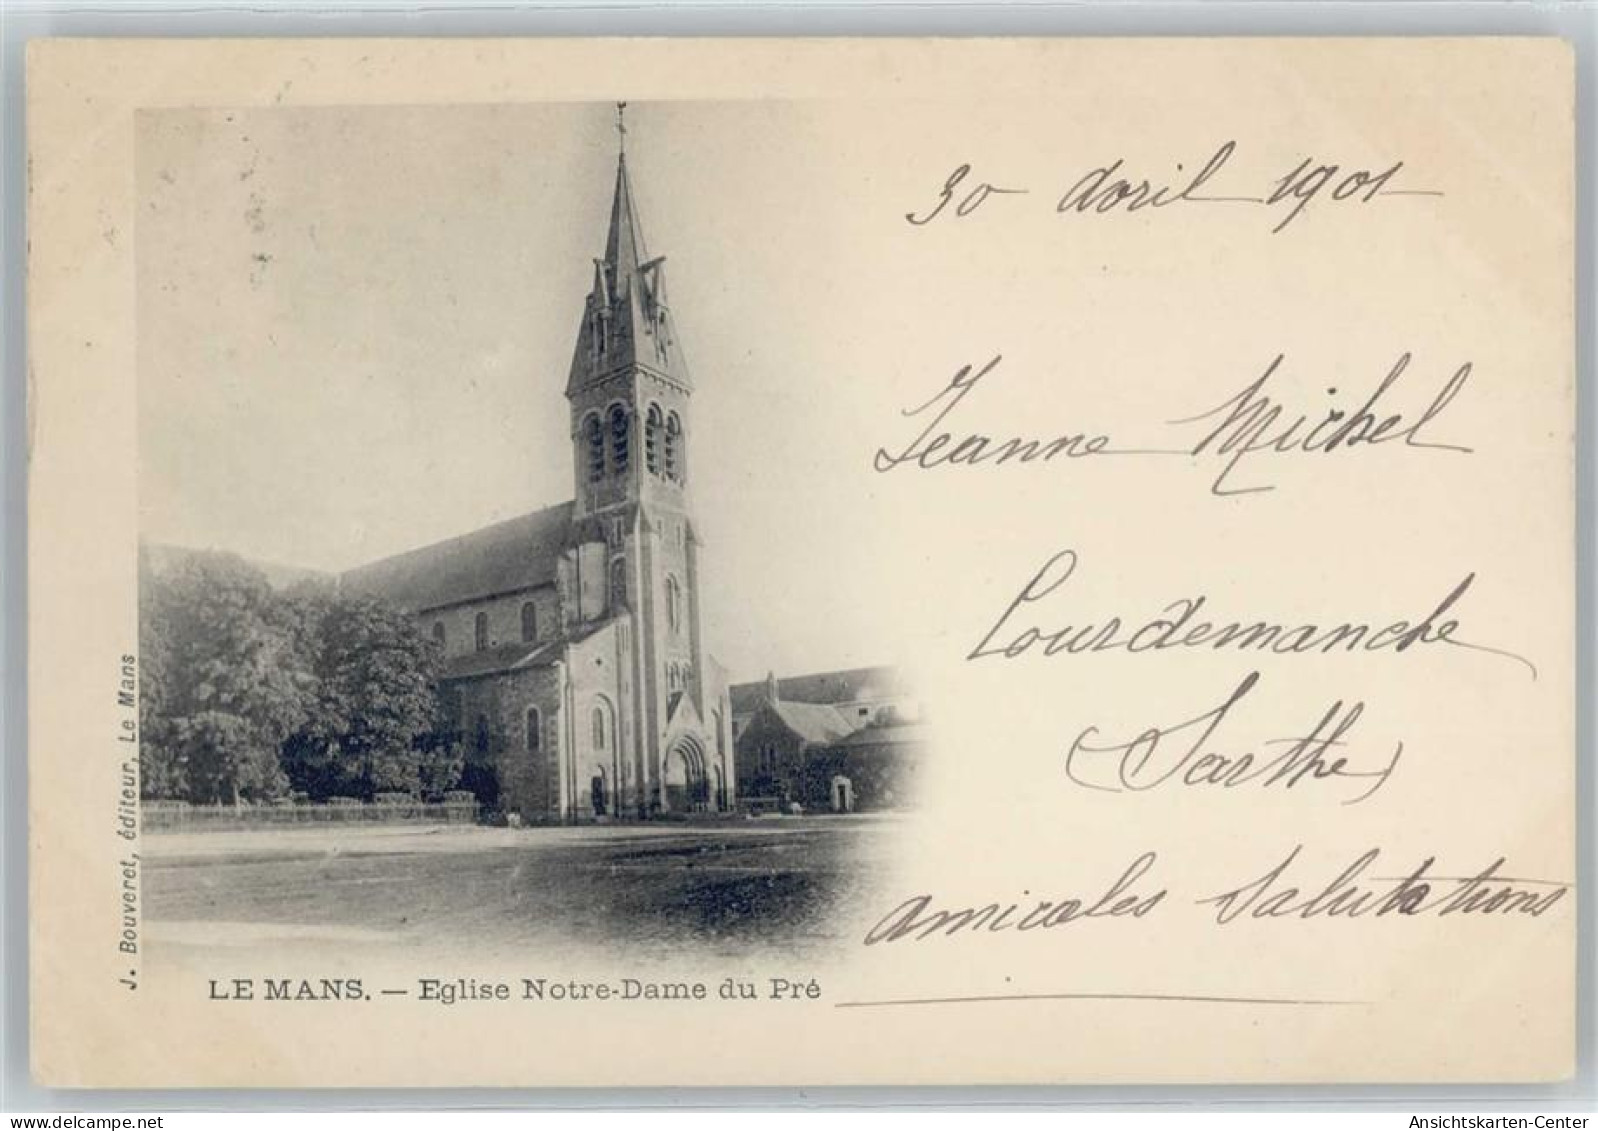 30 avril 1901
Jeanne Michel
Courdemanche
(Sarthe)
amicales salutations
LE MANS. — Eglise Notre-Dame du Pré
J. Bouveret, éditeur, Le Mans
Ansichtskarten-Center